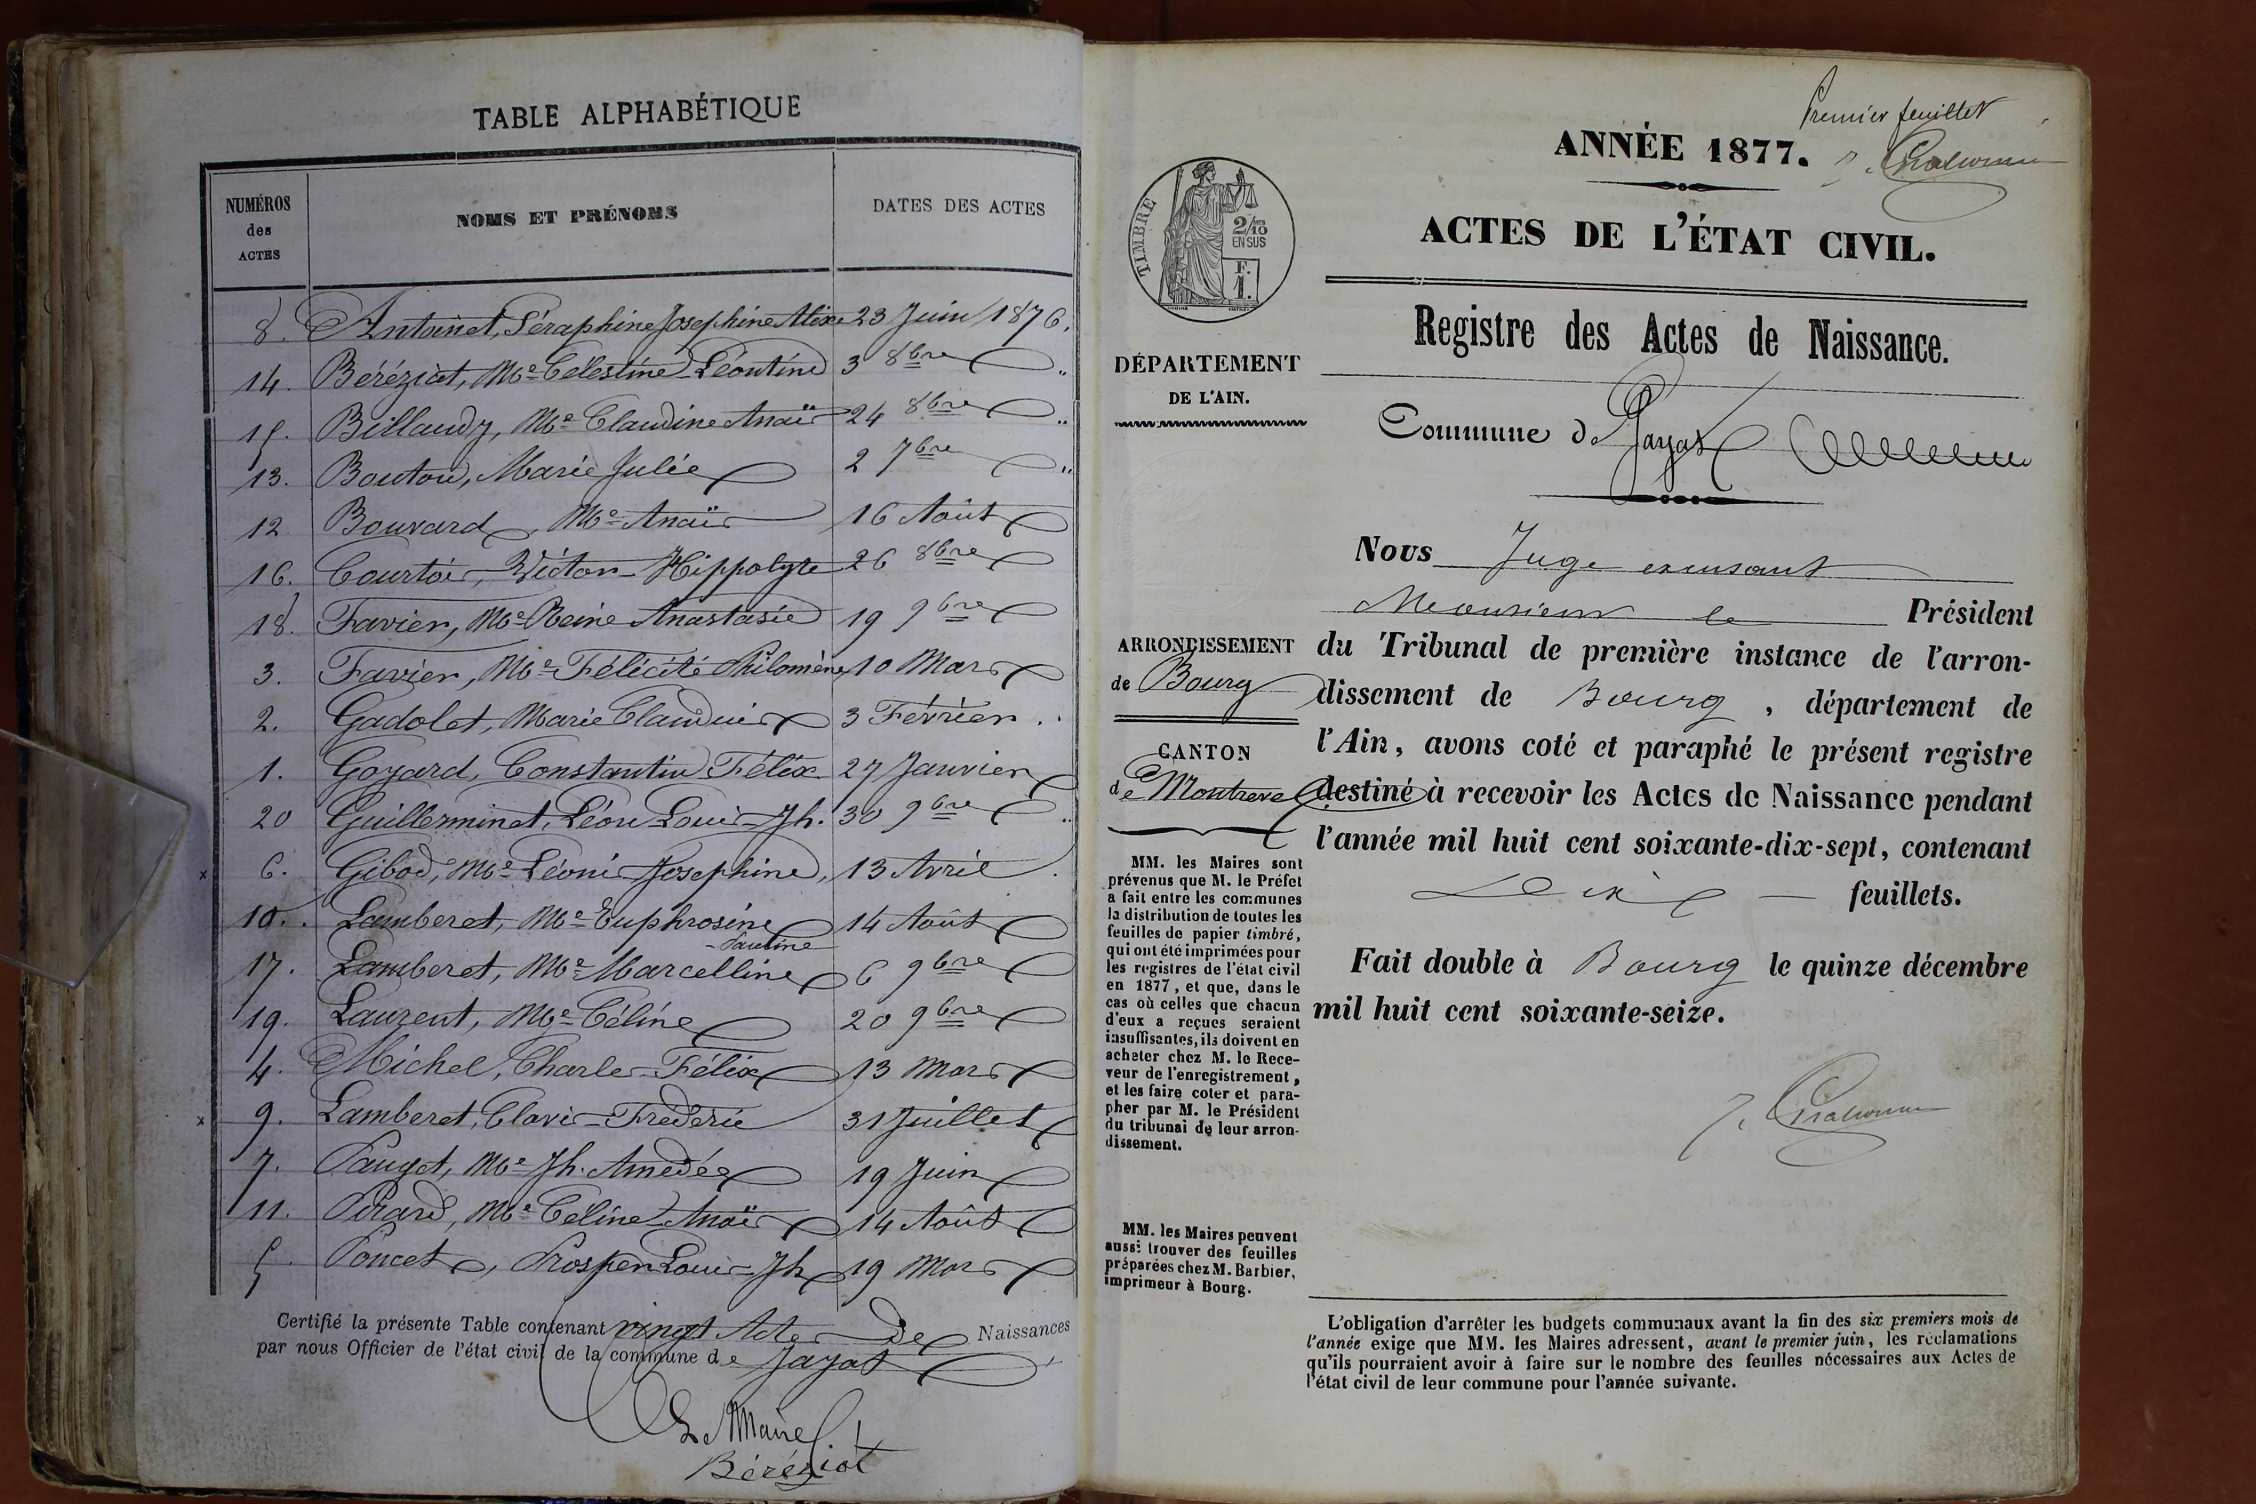 TABLE ALPHABÉTIQUE
NUMÉROS des ACTES NOMS ET PRÉNOMS DATES DES ACTES
8. Antoinet, Séraphine Josephine Alix 23 Juin 1876.
14. Béréziat, Mie Célestine Léontine 3 8bre "
15. Billaudy, Mie Claudine Anaïs 24 8bre "
13. Bouton, Marie Julie 2 7bre "
12 Bouvard, Mie Anaïs 16 Août
16. Courtois, Victor Hippolyte 26 8bre
18. Favier, Mie Reine Anastasie 19 9bre
3. Favier, Mie Félicité Philomène 10 Mars
2. Gadolet, Marie Claudius 3 Février
1. Goyard, Constantin Félix 27 Janvier
20 Guillerminet, Léon Louis Jh. 30 9bre "
x 6. Gibod, Mie Léonie Josephine, 13 Avril
10. Lamberet, Mie Euphrosine 14 Août
Pauline
17. Lamberet, Mie Marcelline 6 9bre
19. Laurent, Mie Céline 20 9bre
4. Michel, Charles Félix 13 Mars
x 9. Lamberet, Clovis Fréderic 31 Juillet
7. Pauget, Mie Jh. Amedée 19 Juin
11. Pirard, Mie Céline Anaïs 14 Août
5 Poncet, Prosper Louis Jh 19 Mars
Certifié la présente Table contenant vingt Actes de Naissances
par nous Officier de l'état civil de la commune de Jayat
Le Maire
Béréziat
Premier feuillet
ANNÉE 1877.
ACTES DE L'ÉTAT CIVIL.
TIMBRE
2/10
EN SUS
F.
1.
Registre des Actes de Naissance.
DÉPARTEMENT
DE L'AIN.
Commune de Jayat
Nous Juge excusant
Monsieur le Président
ARRONDISSEMENT
de Bourg
du Tribunal de première instance de l'arron-
dissement de Bourg, département de
l'Ain, avons coté et paraphé le présent registre
destiné à recevoir les Actes de Naissance pendant
l'année mil huit cent soixante-dix-sept, contenant
dix feuillets.
Fait double à Bourg le quinze décembre
mil huit cent soixante-seize.
CANTON
de Montrevel
MM. les Maires sont
prévenus que M. le Préfet
a fait entre les communes
la distribution de toutes les
feuilles de papier timbré,
qui ont été imprimées pour
les registres de l'état civil
en 1877, et que, dans le
cas où celles que chacun
d'eux a reçues seraient
insuffisantes, ils doivent en
acheter chez M. le Rece-
veur de l'enregistrement,
et les faire coter et para-
pher par M. le Président
du tribunal de leur arron-
dissement.
MM. les Maires peuvent
aussi trouver des feuilles
préparées chez M. Barbier,
imprimeur à Bourg.
L'obligation d'arrêter les budgets communaux avant la fin des six premiers mois de
l'année exige que MM. les Maires adressent, avant le premier juin, les réclamations
qu'ils pourraient avoir à faire sur le nombre des feuilles nécessaires aux Actes de
l'état civil de leur commune pour l'année suivante.